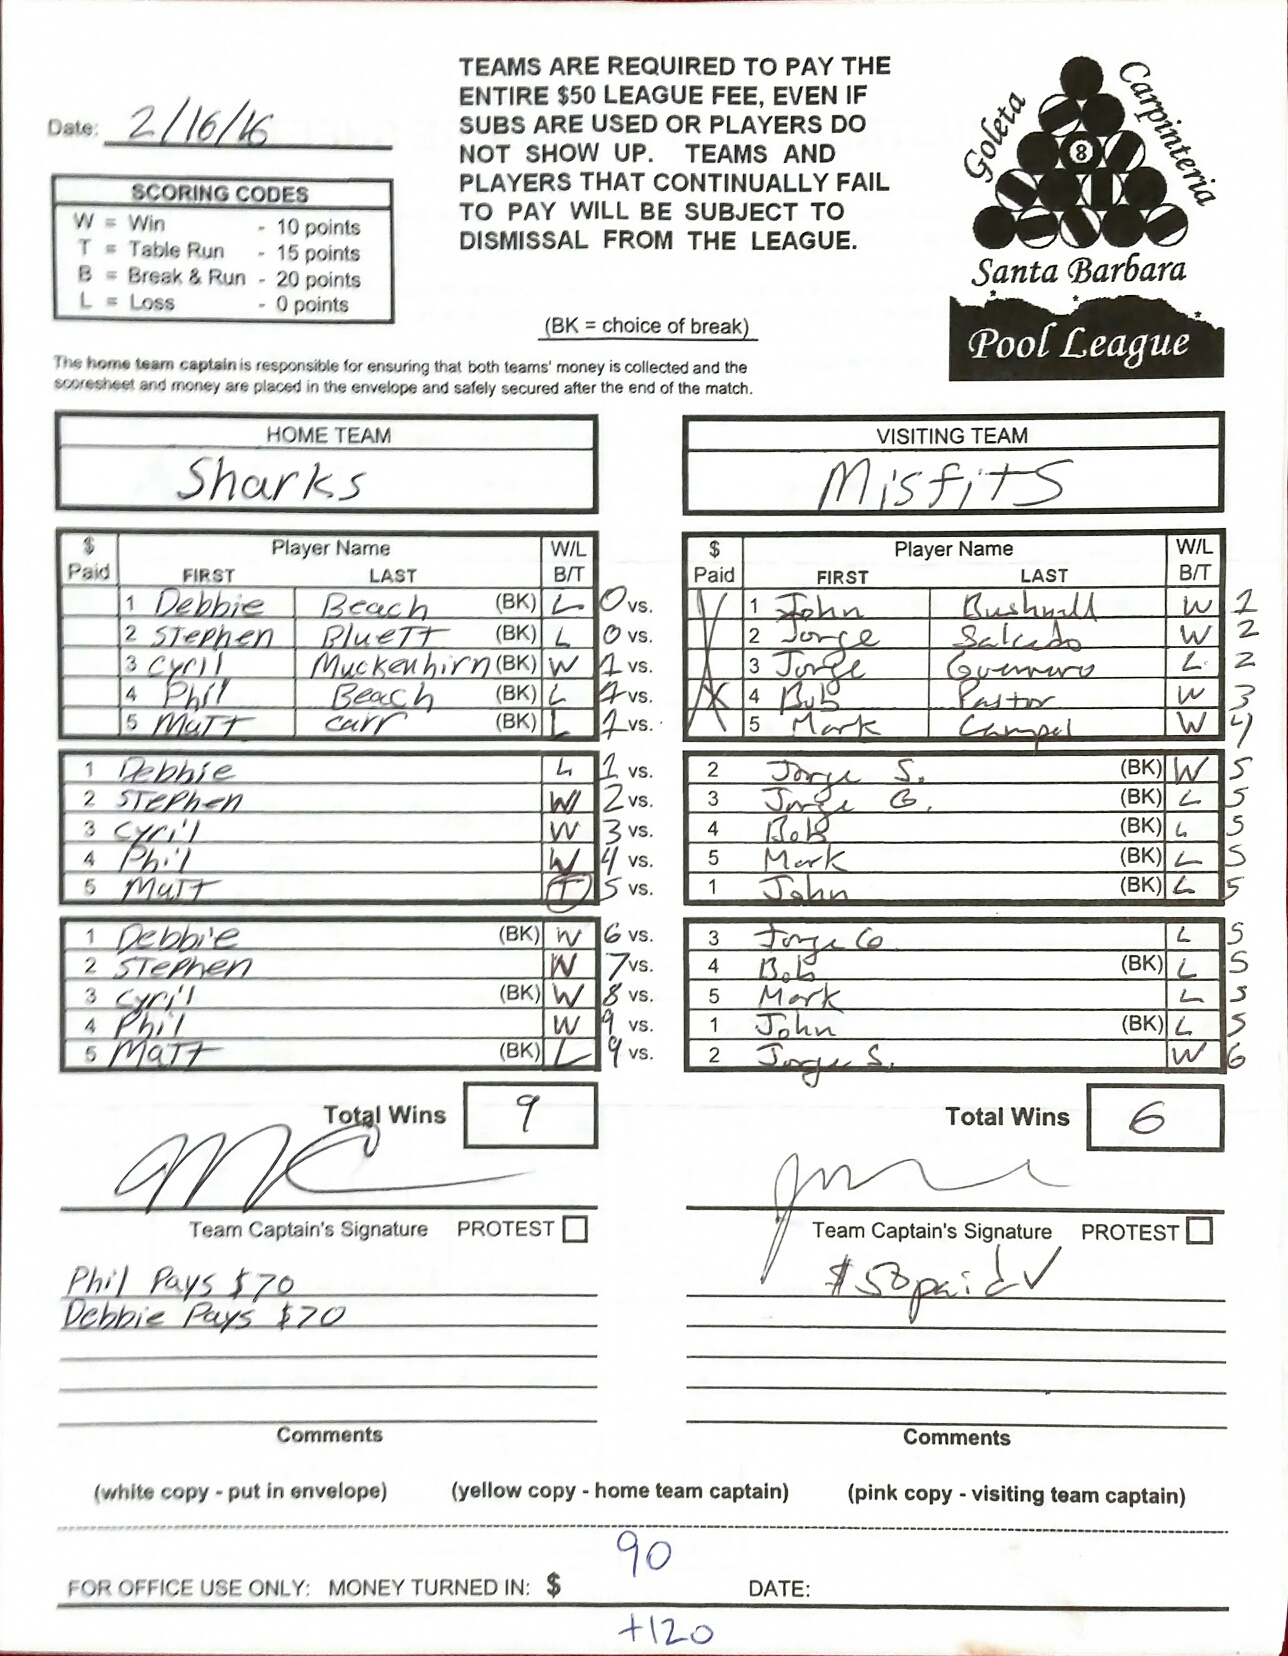 TEAMS ARE REQUIRED TO PAY THE
ENTIRE $50 LEAGUE FEE, EVEN IF
SUBS ARE USED OR PLAYERS DO
NOT SHOW UP. TEAMS AND
PLAYERS THAT CONTINUALLY FAIL
TO PAY WILL BE SUBJECT TO
DISMISSAL FROM THE LEAGUE.
Date: 2/16/16
Goleta
Carpinteria
8
Santa Barbara
Pool League
SCORING CODES
W = Win - 10 points
T = Table Run - 15 points
B = Break & Run - 20 points
L = Loss - 0 points
(BK = choice of break)
The home team captain is responsible for ensuring that both teams' money is collected and the
scoresheet and money are placed in the envelope and safely secured after the end of the match.
HOME TEAM VISITING TEAM
Sharks Misfits
$ Player Name W/L $ Player Name W/L
Paid FIRST LAST B/T Paid FIRST LAST B/T
1 Debbie Beach (BK) L 0 vs. 1 John Bushnell W 1
2 Stephen Bluett (BK) L 0 vs. 2 Jorge Salcedo W 2
3 Cyril Muckenhirn (BK) W 1 vs. 3 Jorge Guerrero L 2
4 Phil Beach (BK) L 1 vs. 4 Bob Pastor W 3
5 Matt Carr (BK) L 1 vs. 5 Mark Campel W 4
1 Debbie L 1 vs. 2 Jorge S. (BK) W 5
2 Stephen W 2 vs. 3 Jorge G. (BK) L 5
3 Cyril W 3 vs. 4 Bob (BK) L 5
4 Phil W 4 vs. 5 Mark (BK) L 5
5 Matt T 5 vs. 1 John (BK) L 5
1 Debbie (BK) W 6 vs. 3 Jorge G L 5
2 Stephen W 7 vs. 4 Bob (BK) L 5
3 Cyril (BK) W 8 vs. 5 Mark L 5
4 Phil W 9 vs. 1 John (BK) L 5
5 Matt (BK) L 9 vs. 2 Jorge S. W 6
Total Wins 9 Total Wins 6
Team Captain's Signature PROTEST Team Captain's Signature PROTEST
Phil Pays $70 $50 paid ✓
Debbie Pays $70
Comments Comments
(white copy - put in envelope) (yellow copy - home team captain) (pink copy - visiting team captain)
90
FOR OFFICE USE ONLY: MONEY TURNED IN: $ DATE:
+120